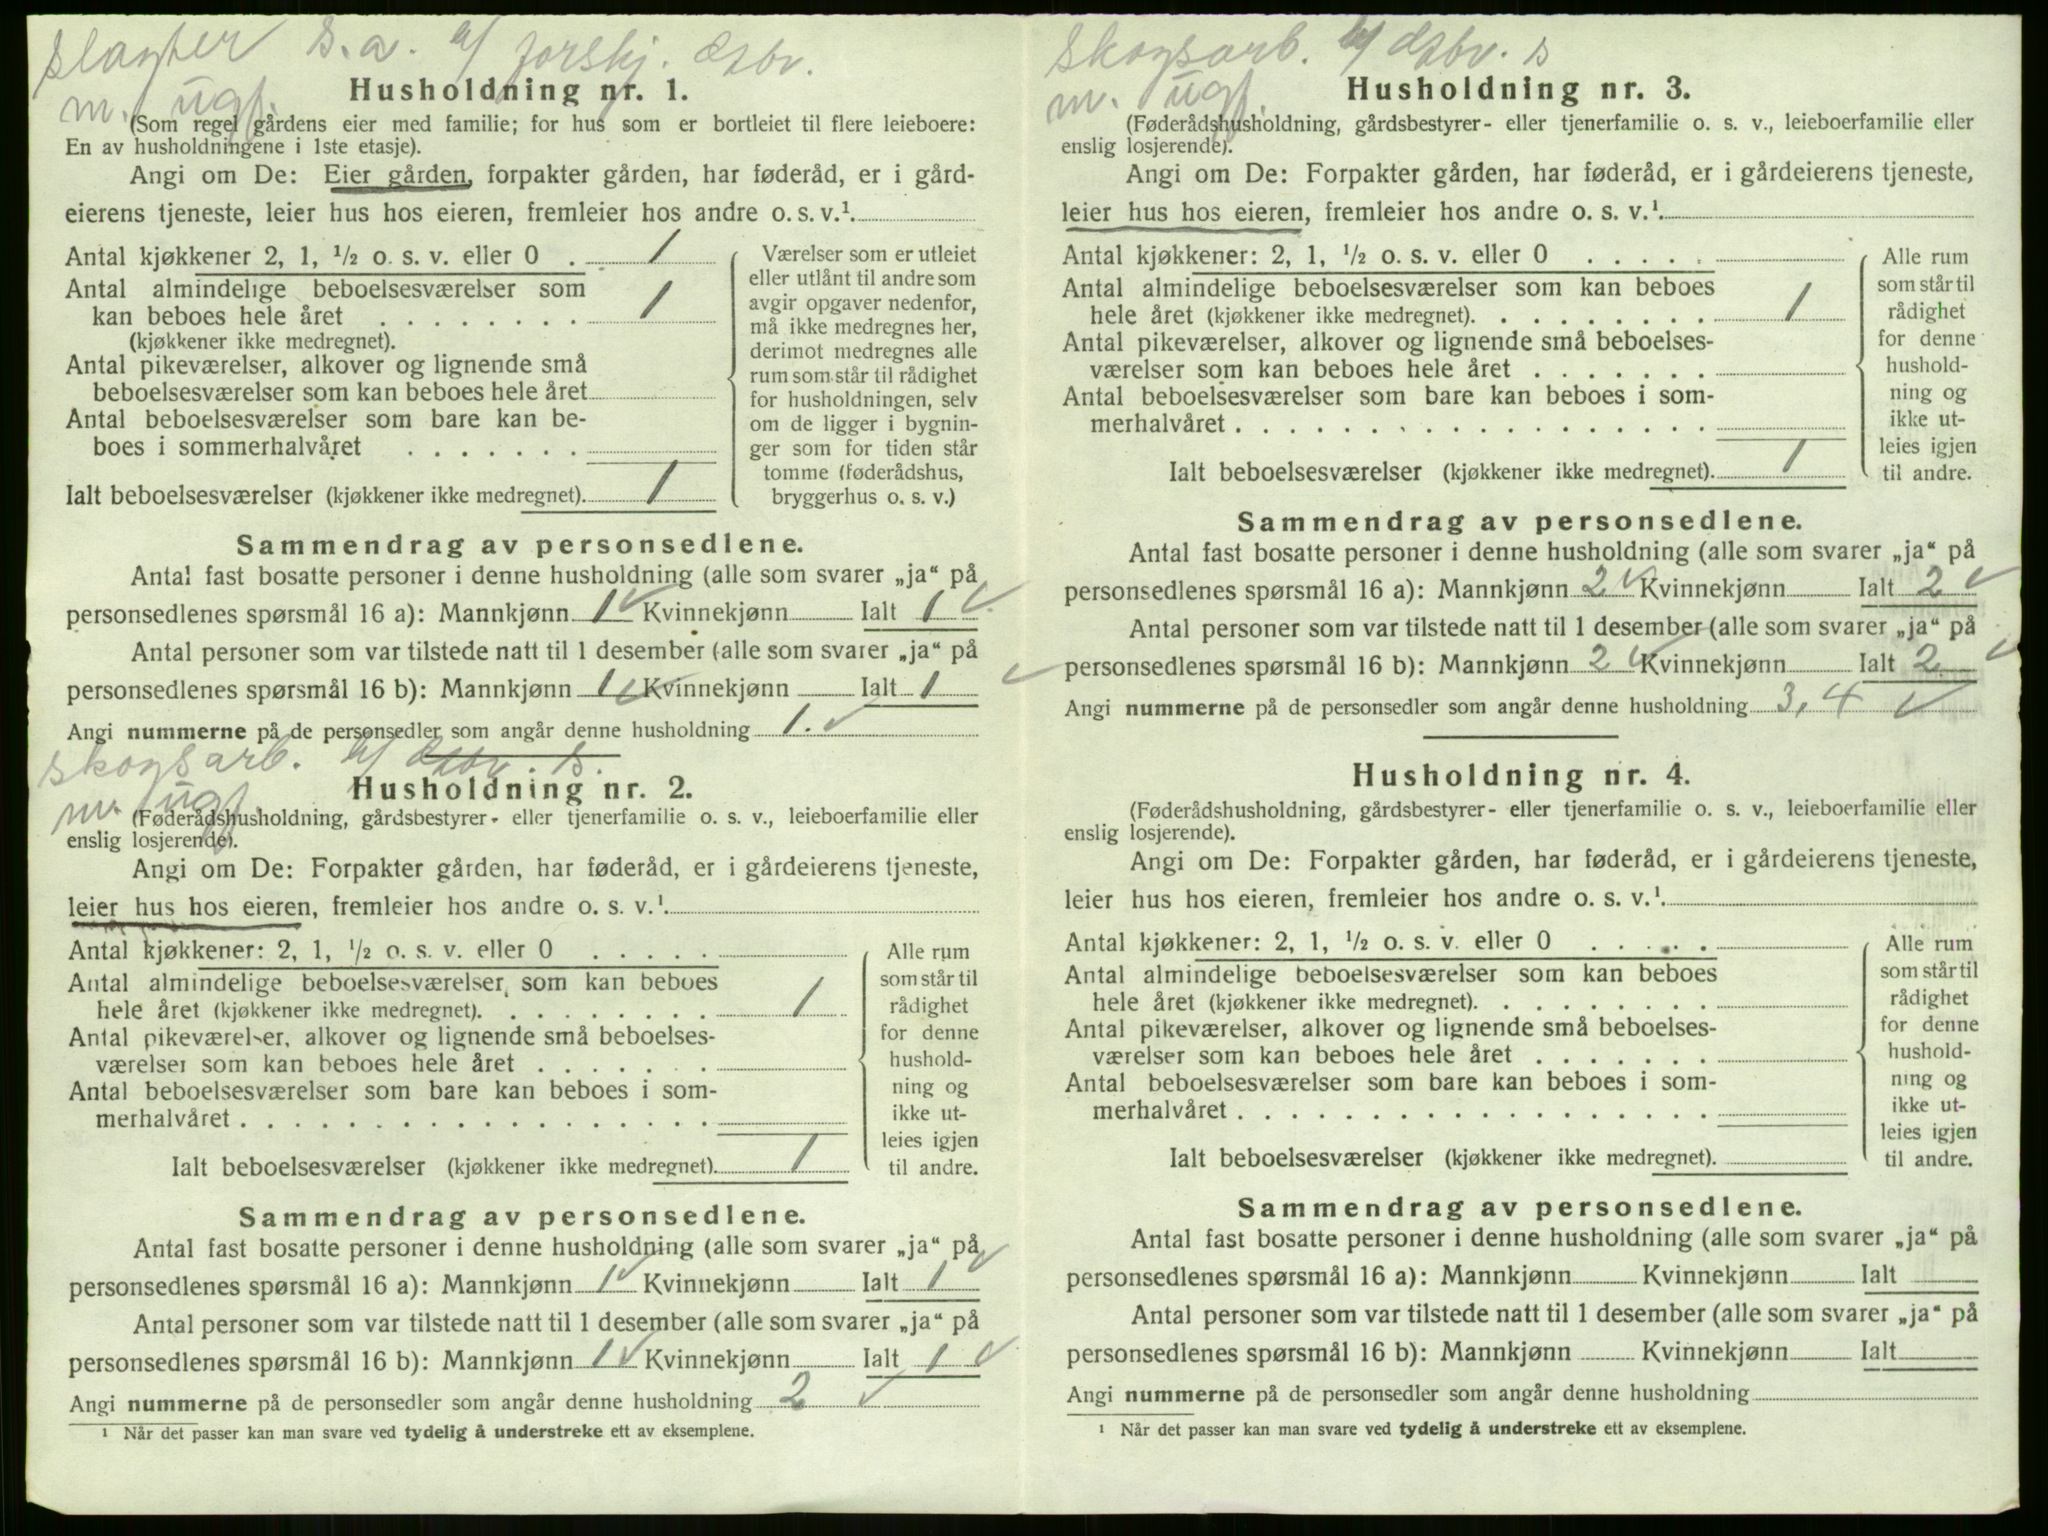 slagter s.a. h/ forskj. dsbv.
m. ugf.
Husholdning nr. 1.
(Som regel gårdens eier med familie; for hus som er bortleiet til flere leieboere:
En av husholdningene i 1ste etasje).
Angi om De: Eier gården, forpakter gården, har føderåd, er i gård-
eierens tjeneste, leier hus hos eieren, fremleier hos andre o. s. v.¹.
Antal kjøkkener 2, 1, ½ o. s. v. eller 0 . 1
Antal almindelige beboelsesværelser som
kan beboes hele året . . . . . . . . 1
(kjøkkener ikke medregnet).
Antal pikeværelser, alkover og lignende små
beboelsesværelser som kan beboes hele året
Antal beboelsesværelser som bare kan be-
boes i sommerhalvåret . . . . . . .
Ialt beboelsesværelser (kjøkkener ikke medregnet). 1
Værelser som er utleiet
eller utlånt til andre som
avgir opgaver nedenfor,
må ikke medregnes her,
derimot medregnes alle
rum som står til rådighet
for husholdningen, selv
om de ligger i bygnin-
ger som for tiden står
tomme (føderådshus,
bryggerhus o. s. v.)
Sammendrag av personsedlene.
Antal fast bosatte personer i denne husholdning (alle som svarer „ja“ på
personsedlenes spørsmål 16 a): Mannkjønn 1 ✓ Kvinnekjønn Ialt 1 ✓
Antal personer som var tilstede natt til 1 desember (alle som svarer „ja“ på
personsedlenes spørsmål 16 b): Mannkjønn 1 ✓ Kvinnekjønn Ialt 1 ✓
Angi nummerne på de personsedler som angår denne husholdning 1. ✓
skogsarb. h/ dsbv. s.
m. ugf.
Husholdning nr. 2.
(Føderådshusholdning, gårdsbestyrer- eller tjenerfamilie o. s. v., leieboerfamilie eller
enslig losjerende).
Angi om De: Forpakter gården, har føderåd, er i gårdeierens tjeneste,
leier hus hos eieren, fremleier hos andre o. s. v.¹.
Antal kjøkkener: 2, 1, ½ o. s. v. eller 0 . . . . .
Antal almindelige beboelsesværelser som kan beboes
hele året (kjøkkener ikke medregnet). . . . . . . . . 1
Antal pikeværelser, alkover og lignende små beboelses-
værelser som kan beboes hele året . . . . . . .
Antal beboelsesværelser som bare kan beboes i som-
merhalvåret . . . . . . . . . . . . . . . . . .
Ialt beboelsesværelser (kjøkkener ikke medregnet). 1
Alle rum
som står til
rådighet
for denne
hushold-
ning og
ikke ut-
leies igjen
til andre.
Sammendrag av personsedlene.
Antal fast bosatte personer i denne husholdning (alle som svarer „ja“ på
personsedlenes spørsmål 16 a): Mannkjønn 1 ✓ Kvinnekjønn Ialt 1 ✓
Antal personer som var tilstede natt til 1 desember (alle som svarer „ja“ på
personsedlenes spørsmål 16 b): Mannkjønn 1 ✓ Kvinnekjønn Ialt 1 ✓
Angi nummerne på de personsedler som angår denne husholdning 2 ✓
¹ Når det passer kan man svare ved tydelig å understreke ett av eksemplene.
skogsarb. h/ dsbv. s
m. ugf.
Husholdning nr. 3.
(Føderådshusholdning, gårdsbestyrer- eller tjenerfamilie o. s. v., leieboerfamilie eller
enslig losjerende).
Angi om De: Forpakter gården, har føderåd, er i gårdeierens tjeneste,
leier hus hos eieren, fremleier hos andre o. s. v.¹.
Antal kjøkkener: 2, 1, ½ o. s. v. eller 0 . . . . .
Antal almindelige beboelsesværelser som kan beboes
hele året (kjøkkener ikke medregnet). . . . . . . . . 1
Antal pikeværelser, alkover og lignende små beboelses-
værelser som kan beboes hele året . . . . . . .
Antal beboelsesværelser som bare kan beboes i som-
merhalvåret . . . . . . . . . . . . . . . . . .
Ialt beboelsesværelser (kjøkkener ikke medregnet). 1
Alle rum
som står til
rådighet
for denne
hushold-
ning og
ikke ut-
leies igjen
til andre.
Sammendrag av personsedlene.
Antal fast bosatte personer i denne husholdning (alle som svarer „ja“ på
personsedlenes spørsmål 16 a): Mannkjønn 2 ✓ Kvinnekjønn Ialt 2 ✓
Antal personer som var tilstede natt til 1 desember (alle som svarer „ja“ på
personsedlenes spørsmål 16 b): Mannkjønn 2 ✓ Kvinnekjønn Ialt 2 ✓
Angi nummerne på de personsedler som angår denne husholdning 3, 4 ✓
Husholdning nr. 4.
(Føderådshusholdning, gårdsbestyrer- eller tjenerfamilie o. s. v., leieboerfamilie eller
enslig losjerende).
Angi om De: Forpakter gården, har føderåd, er i gårdeierens tjeneste,
leier hus hos eieren, fremleier hos andre o. s. v.¹.
Antal kjøkkener: 2, 1, ½ o. s. v. eller 0 . . . . .
Antal almindelige beboelsesværelser som kan beboes
hele året (kjøkkener ikke medregnet). . . . . . . . .
Antal pikeværelser, alkover og lignende små beboelses-
værelser som kan beboes hele året . . . . . . .
Antal beboelsesværelser som bare kan beboes i som-
merhalvåret . . . . . . . . . . . . . . . . . .
Ialt beboelsesværelser (kjøkkener ikke medregnet).
Alle rum
som står til
rådighet
for denne
hushold-
ning og
ikke ut-
leies igjen
til andre.
Sammendrag av personsedlene.
Antal fast bosatte personer i denne husholdning (alle som svarer „ja“ på
personsedlenes spørsmål 16 a): Mannkjønn Kvinnekjønn Ialt
Antal personer som var tilstede natt til 1 desember (alle som svarer „ja“ på
personsedlenes spørsmål 16 b): Mannkjønn Kvinnekjønn Ialt
Angi nummerne på de personsedler som angår denne husholdning
¹ Når det passer kan man svare ved tydelig å understreke ett av eksemplene.